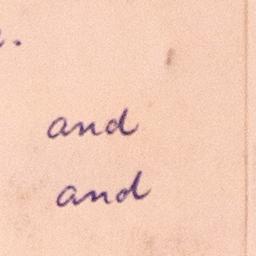 and
and